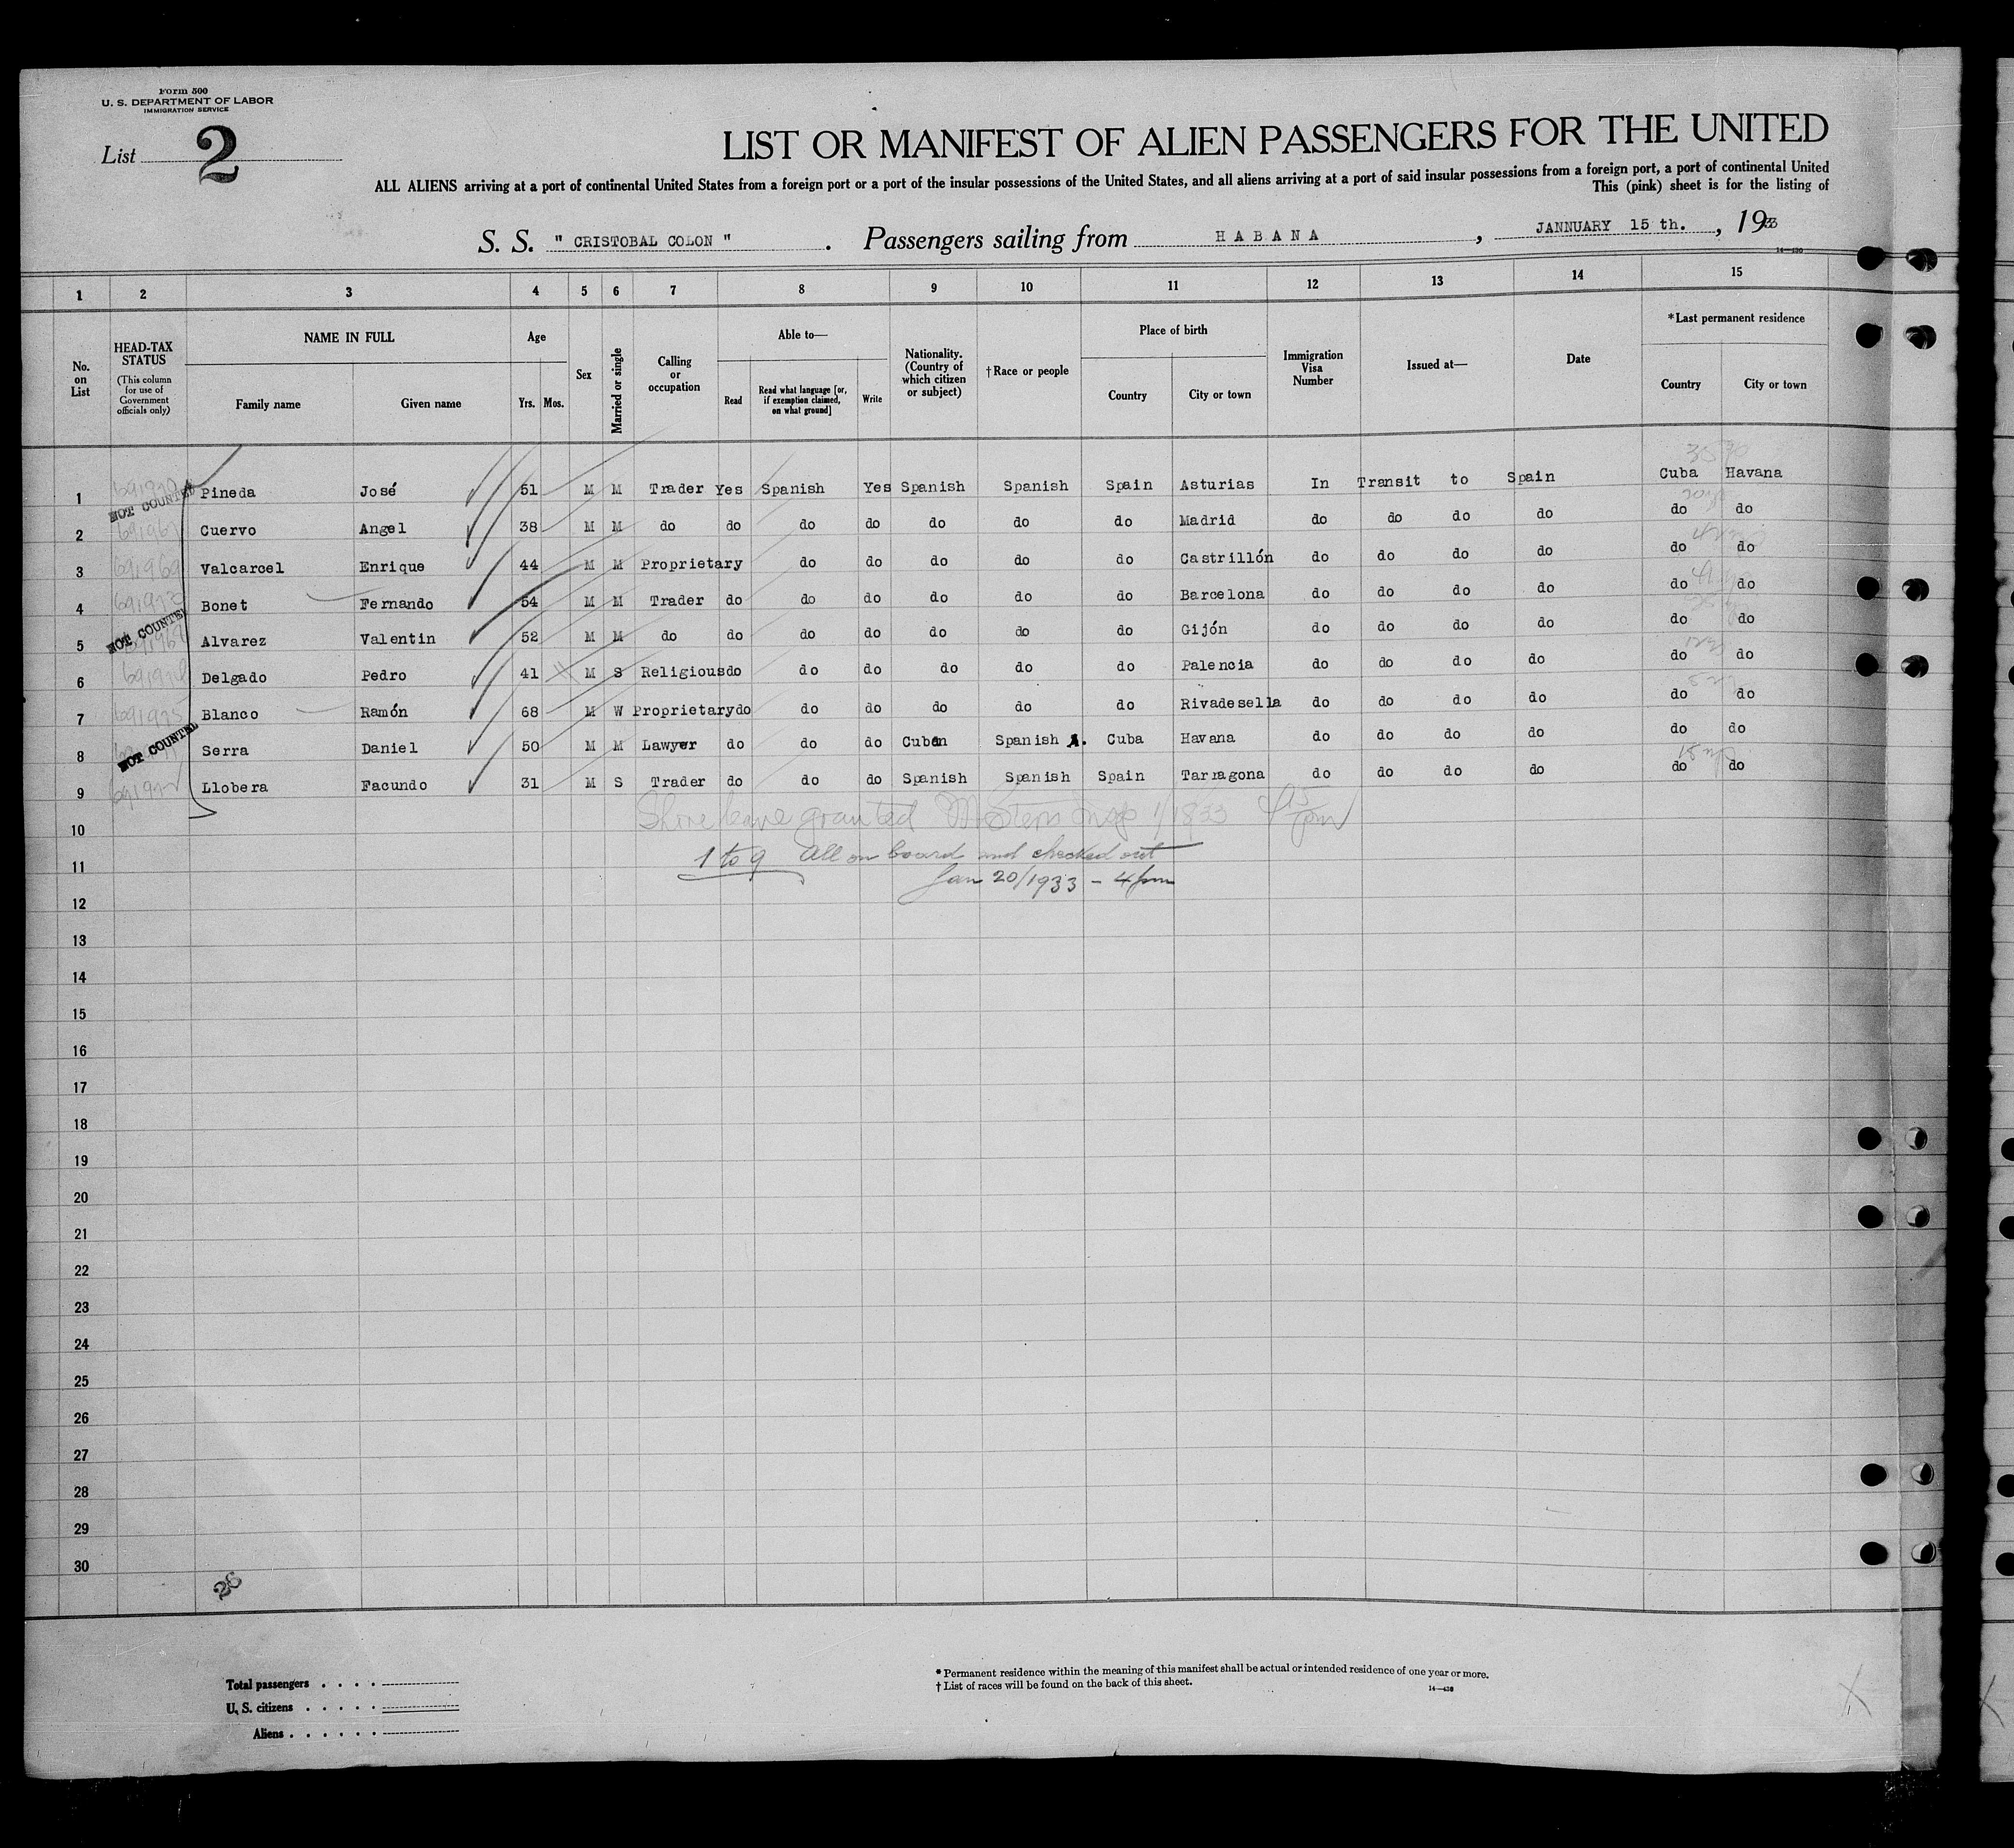 Form 500
U. S. DEPARTMENT OF LABOR
IMMIGRATION SERVICE
List 2
LIST OR MANIFEST OF ALIEN PASSENGERS FOR THE UNITED
ALL ALIENS arriving at a port of continental United States from a foreign port or a port of the insular possessions of the United States, and all aliens arriving at a port of said insular possessions from a foreign port, a port of continental United
This (pink) sheet is for the listing of
S. S. " CRISTOBAL COLON " . Passengers sailing from HABANA , JANNUARY 15 th. , 1933
14—430
1 2 3 4 5 6 7 8 9 10 11 12 13 14 15
No. on List
HEAD-TAX STATUS (This column for use of Government officials only)
NAME IN FULL Family name Given name
Age Yrs. Mos.
Sex
Married or single
Calling or occupation
Able to— Read Read what language [or, if exemption claimed, on what ground] Write
Nationality. (Country of which citizen or subject)
†Race or people
Place of birth Country City or town
Immigration Visa Number
Issued at—
Date
*Last permanent residence Country City or town
1 Pineda José 51 M M Trader Yes Spanish Yes Spanish Spanish Spain Asturias In Transit to Spain Cuba Havana
NOT COUNTED
2 Cuervo Angel 38 M M do do do do do do do Madrid do do do do do do
3 Valcarcel Enrique 44 M M Proprietary do do do do do Castrillón do do do do do do
4 Bonet Fernando 54 M M Trader do do do do do do Barcelona do do do do do do
NOT COUNTED
5 Alvarez Valentin 52 M M do do do do do do do Gijón do do do do do do
6 Delgado Pedro 41 M S Religious do do do do do do Palencia do do do do do do
7 Blanco Ramón 68 M W Proprietary do do do do do do Rivadesella do do do do do do
NOT COUNTED
8 Serra Daniel 50 M M Lawyer do do do Cuban Spanish A. Cuba Havana do do do do do do
9 Llobera Facundo 31 M S Trader do do do Spanish Spanish Spain Tarragona do do do do do do
10 Shore leave granted Insp 1/18/33
11 1 to 9 All on board and checked out
Jan 20/1933 - 4 pm
12
13
14
15
16
17
18
19
20
21
22
23
24
25
26
27
28
29
30
26
Total passengers
U. S. citizens
Aliens
* Permanent residence within the meaning of this manifest shall be actual or intended residence of one year or more.
† List of races will be found on the back of this sheet.
14—430